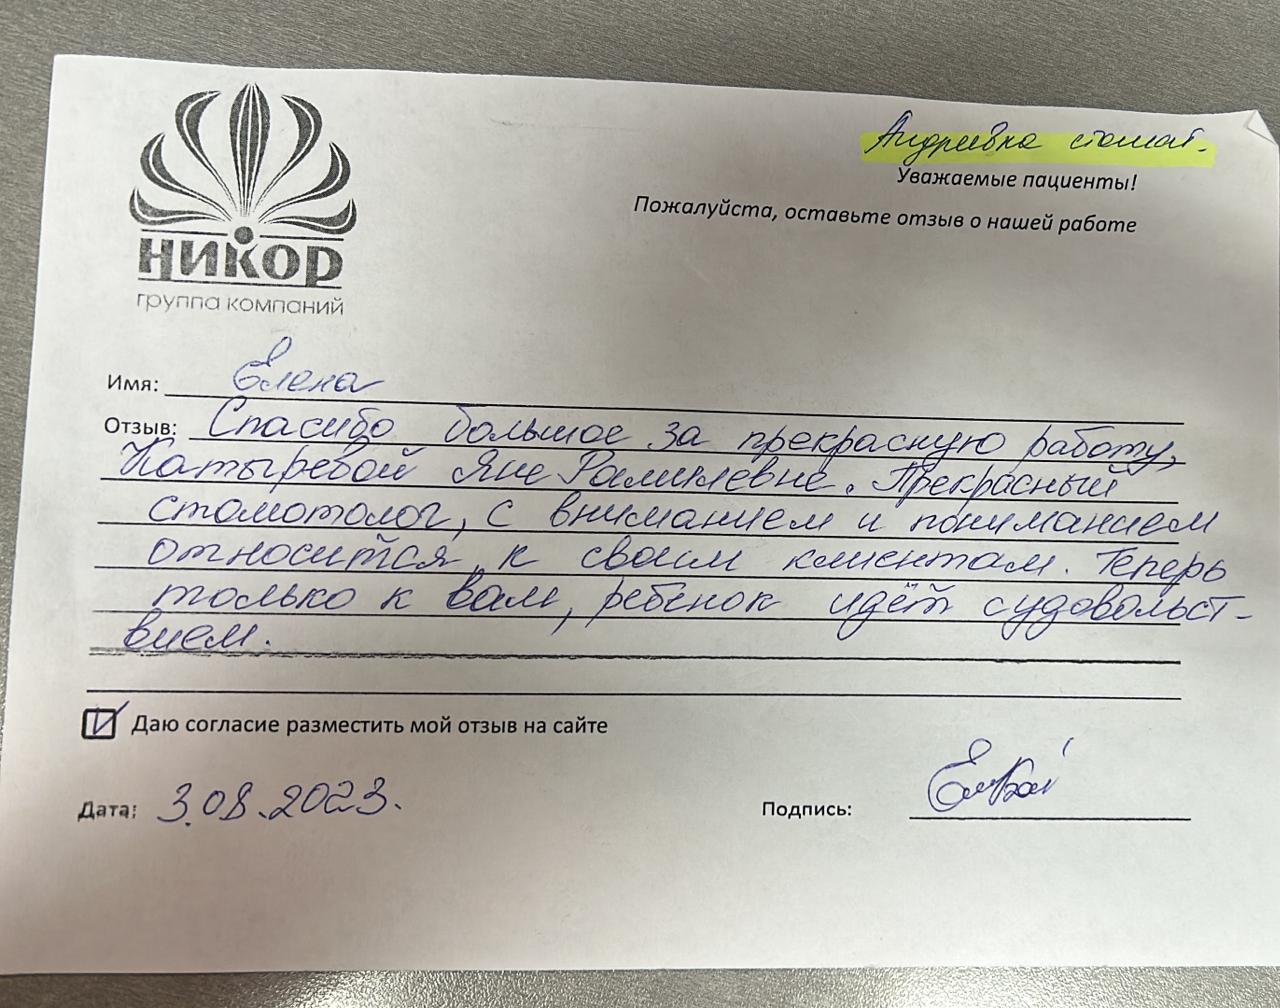 Андреевка стомат.
Уважаемые пациенты!
Пожалуйста, оставьте отзыв о нашей работе
НИКОР
группа компаний
Имя: Елена
Отзыв: Спасибо большое за прекрасную работу,
Катыревой Яне Рамилевне. Прекрасный
стомотолог, с вниманием и пониманием
относится к своим клиентам. Теперь
только к вам, ребёнок идёт судовольст-
вием.
Даю согласие разместить мой отзыв на сайте
Дата: 3.08.2023.
Подпись: